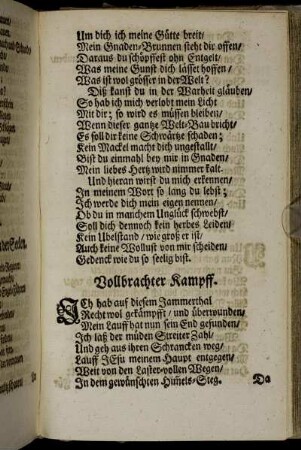 Um dich ich meine Gütte breit/
Mein Gnaden-Brunnen steht dir offen/
Daraus du schöpffest ohn Entgeit/
Was meine Gunst dich lässet hoffen/
Was ist wol grösser in der Welt?
Diß kanst du in der Warheit glauben/
So hab ich mich verlobt mein Licht
Mit dir; so wird es müssen bleiben/
Wenn dieser gantze Welt-Bau bricht/
Es soll dir keine Schwärtze schaden;
Kein Mackel macht dich ungestallt/
Bist du einmahl bey mir in Gnaden/
Mein liebes Hertz wird nimmer kalt.
Und hieran wirst du mich erkennen/
In meinem Wort so lang du lebst;
Ich werde dich mein eigen nennen/
Ob du in manchem Unglück schwebst/
Soll dich dennoch kein herbes Leiden/
Kein Ubelstand/ wie groß er ist/
Auch keine Wollust von mir scheiden/
Gedenck wie du so seelig bist.
Vollbrachter Kampff.
ICh hab auf diesem Jammerthal
Recht wol gekämpfft/ und überwunden/
Mein Lauff hat nun sein End gefunden/
Ich laß der müden Streiter Zahl/
Und geh aus ihren Schrancken weg/
Lauff JEsu meinem Haupt entgegen/
Weit von den Laster-vollen Wegen/
In dem gewünschten Him̃els-Steg.
Da